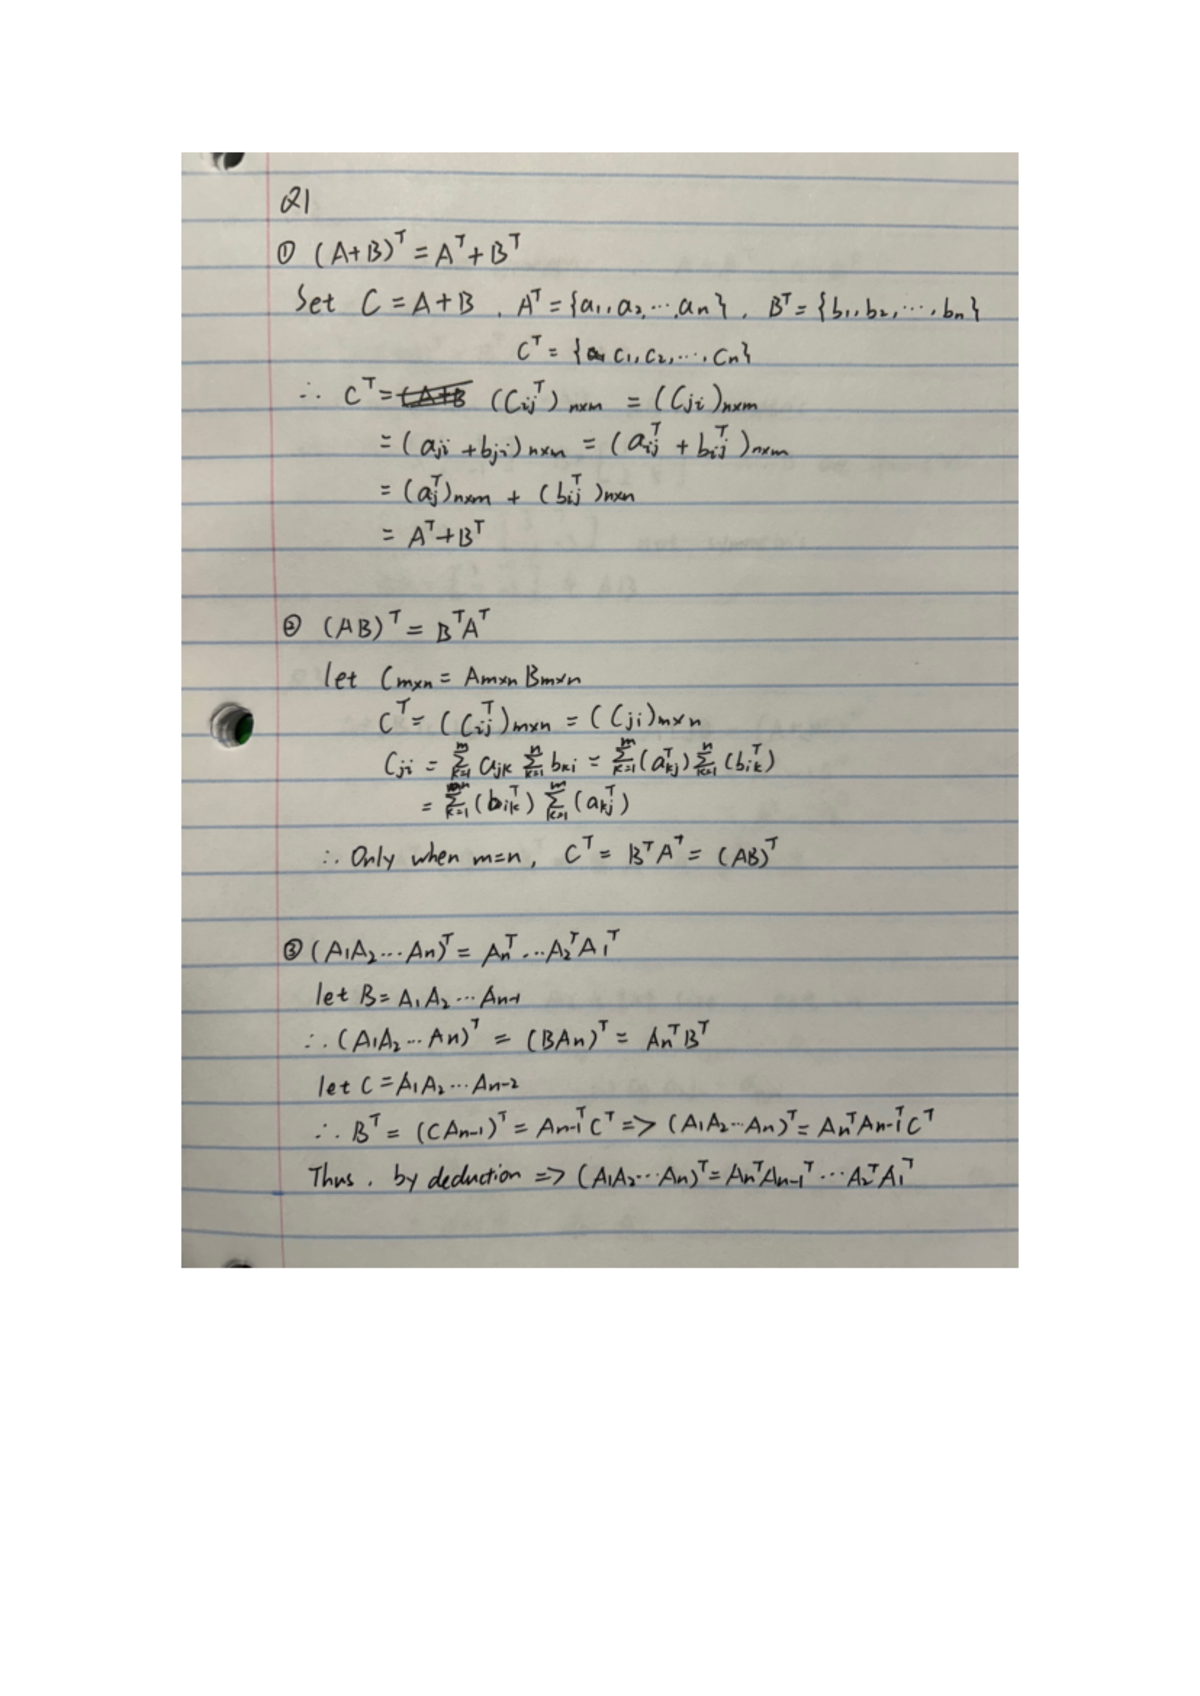 Q1
① (A+B)ᵀ = Aᵀ + Bᵀ
Set C = A+B , Aᵀ = {a₁, a₂, ⋯, aₙ} , Bᵀ = {b₁, b₂, ⋯, bₙ}
Cᵀ = {c₁, c₂, ⋯, cₙ}
∴ Cᵀ = (Cijᵀ)n×m = (Cji)n×m
= (aji + bji)n×m = (aijᵀ + bijᵀ)n×m
= (ajᵀ)n×m + (bijᵀ)n×n
= Aᵀ + Bᵀ
② (AB)ᵀ = BᵀAᵀ
let Cm×n = Am×n Bm×n
Cᵀ = (Cijᵀ)m×n = (Cji)m×n
Cji = Σₖ₌₁ᵐ ajk Σₖ₌₁ⁿ bki = Σₖ₌₁ᵐ (akjᵀ) Σₖ₌₁ⁿ (bikᵀ)
= Σₖ₌₁ⁿ (bikᵀ) Σₖ₌₁ᵐ (akjᵀ)
∴ Only when m=n, Cᵀ = BᵀAᵀ = (AB)ᵀ
③ (A₁A₂⋯Aₙ)ᵀ = Aₙᵀ⋯A₂ᵀA₁ᵀ
let B = A₁A₂⋯Aₙ₋₁
∴ (A₁A₂⋯Aₙ)ᵀ = (BAₙ)ᵀ = AₙᵀBᵀ
let C = A₁A₂⋯Aₙ₋₂
∴ Bᵀ = (CAₙ₋₁)ᵀ = Aₙ₋₁ᵀCᵀ => (A₁A₂⋯Aₙ)ᵀ = AₙᵀAₙ₋₁ᵀCᵀ
Thus, by deduction => (A₁A₂⋯Aₙ)ᵀ = AₙᵀAₙ₋₁ᵀ⋯A₂ᵀA₁ᵀ